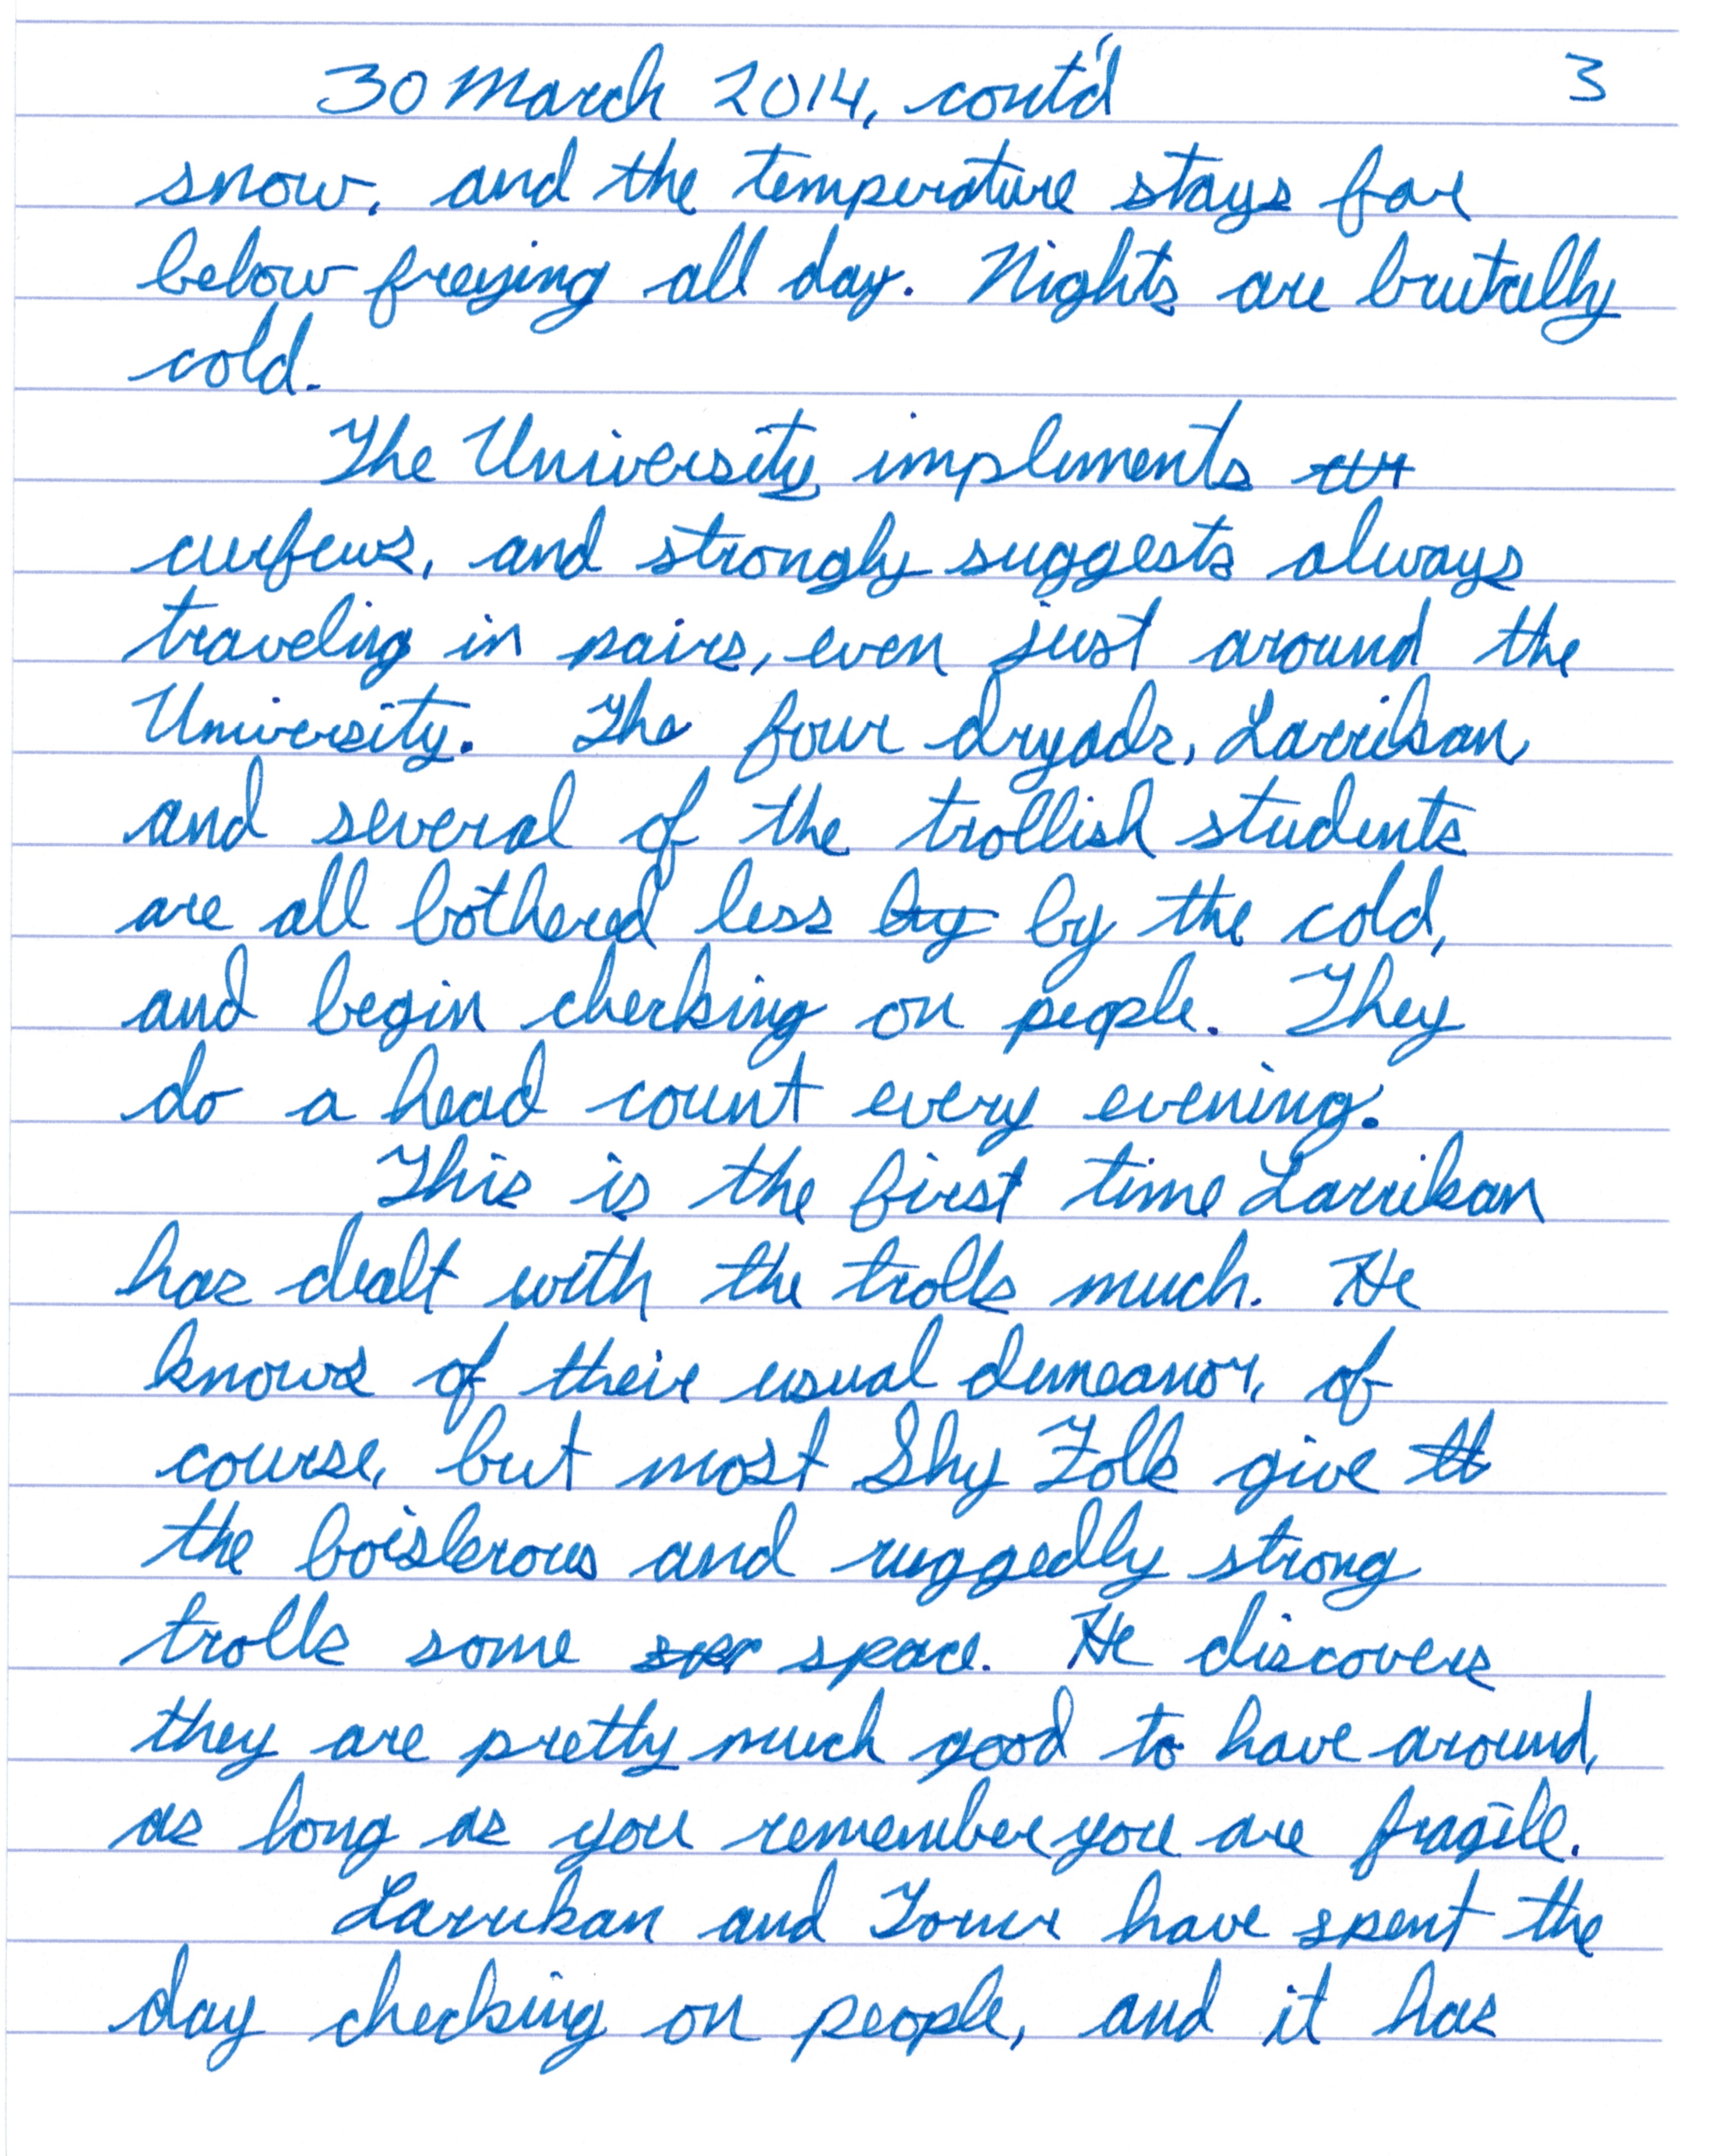 30 March 2014, cont'd 3
snow, and the temperature stays far
below freezing all day. Nights are brutally
cold.
The University implements
curfews, and strongly suggests always
traveling in pairs, even just around the
University. The four dryads, Larrikan,
and several of the trollish students
are all bothered less by by the cold,
and begin checking on people. They
do a head count every evening.
This is the first time Larrikan
has dealt with the trolls much. He
knows of their usual demeanor, of
course, but most Shy Folk give tt
the boisterous and ruggedly strong
trolls some space. He discovers
they are pretty much good to have around,
as long as you remember you are fragile.
Larrikan and have spent the
day checking on people, and it has